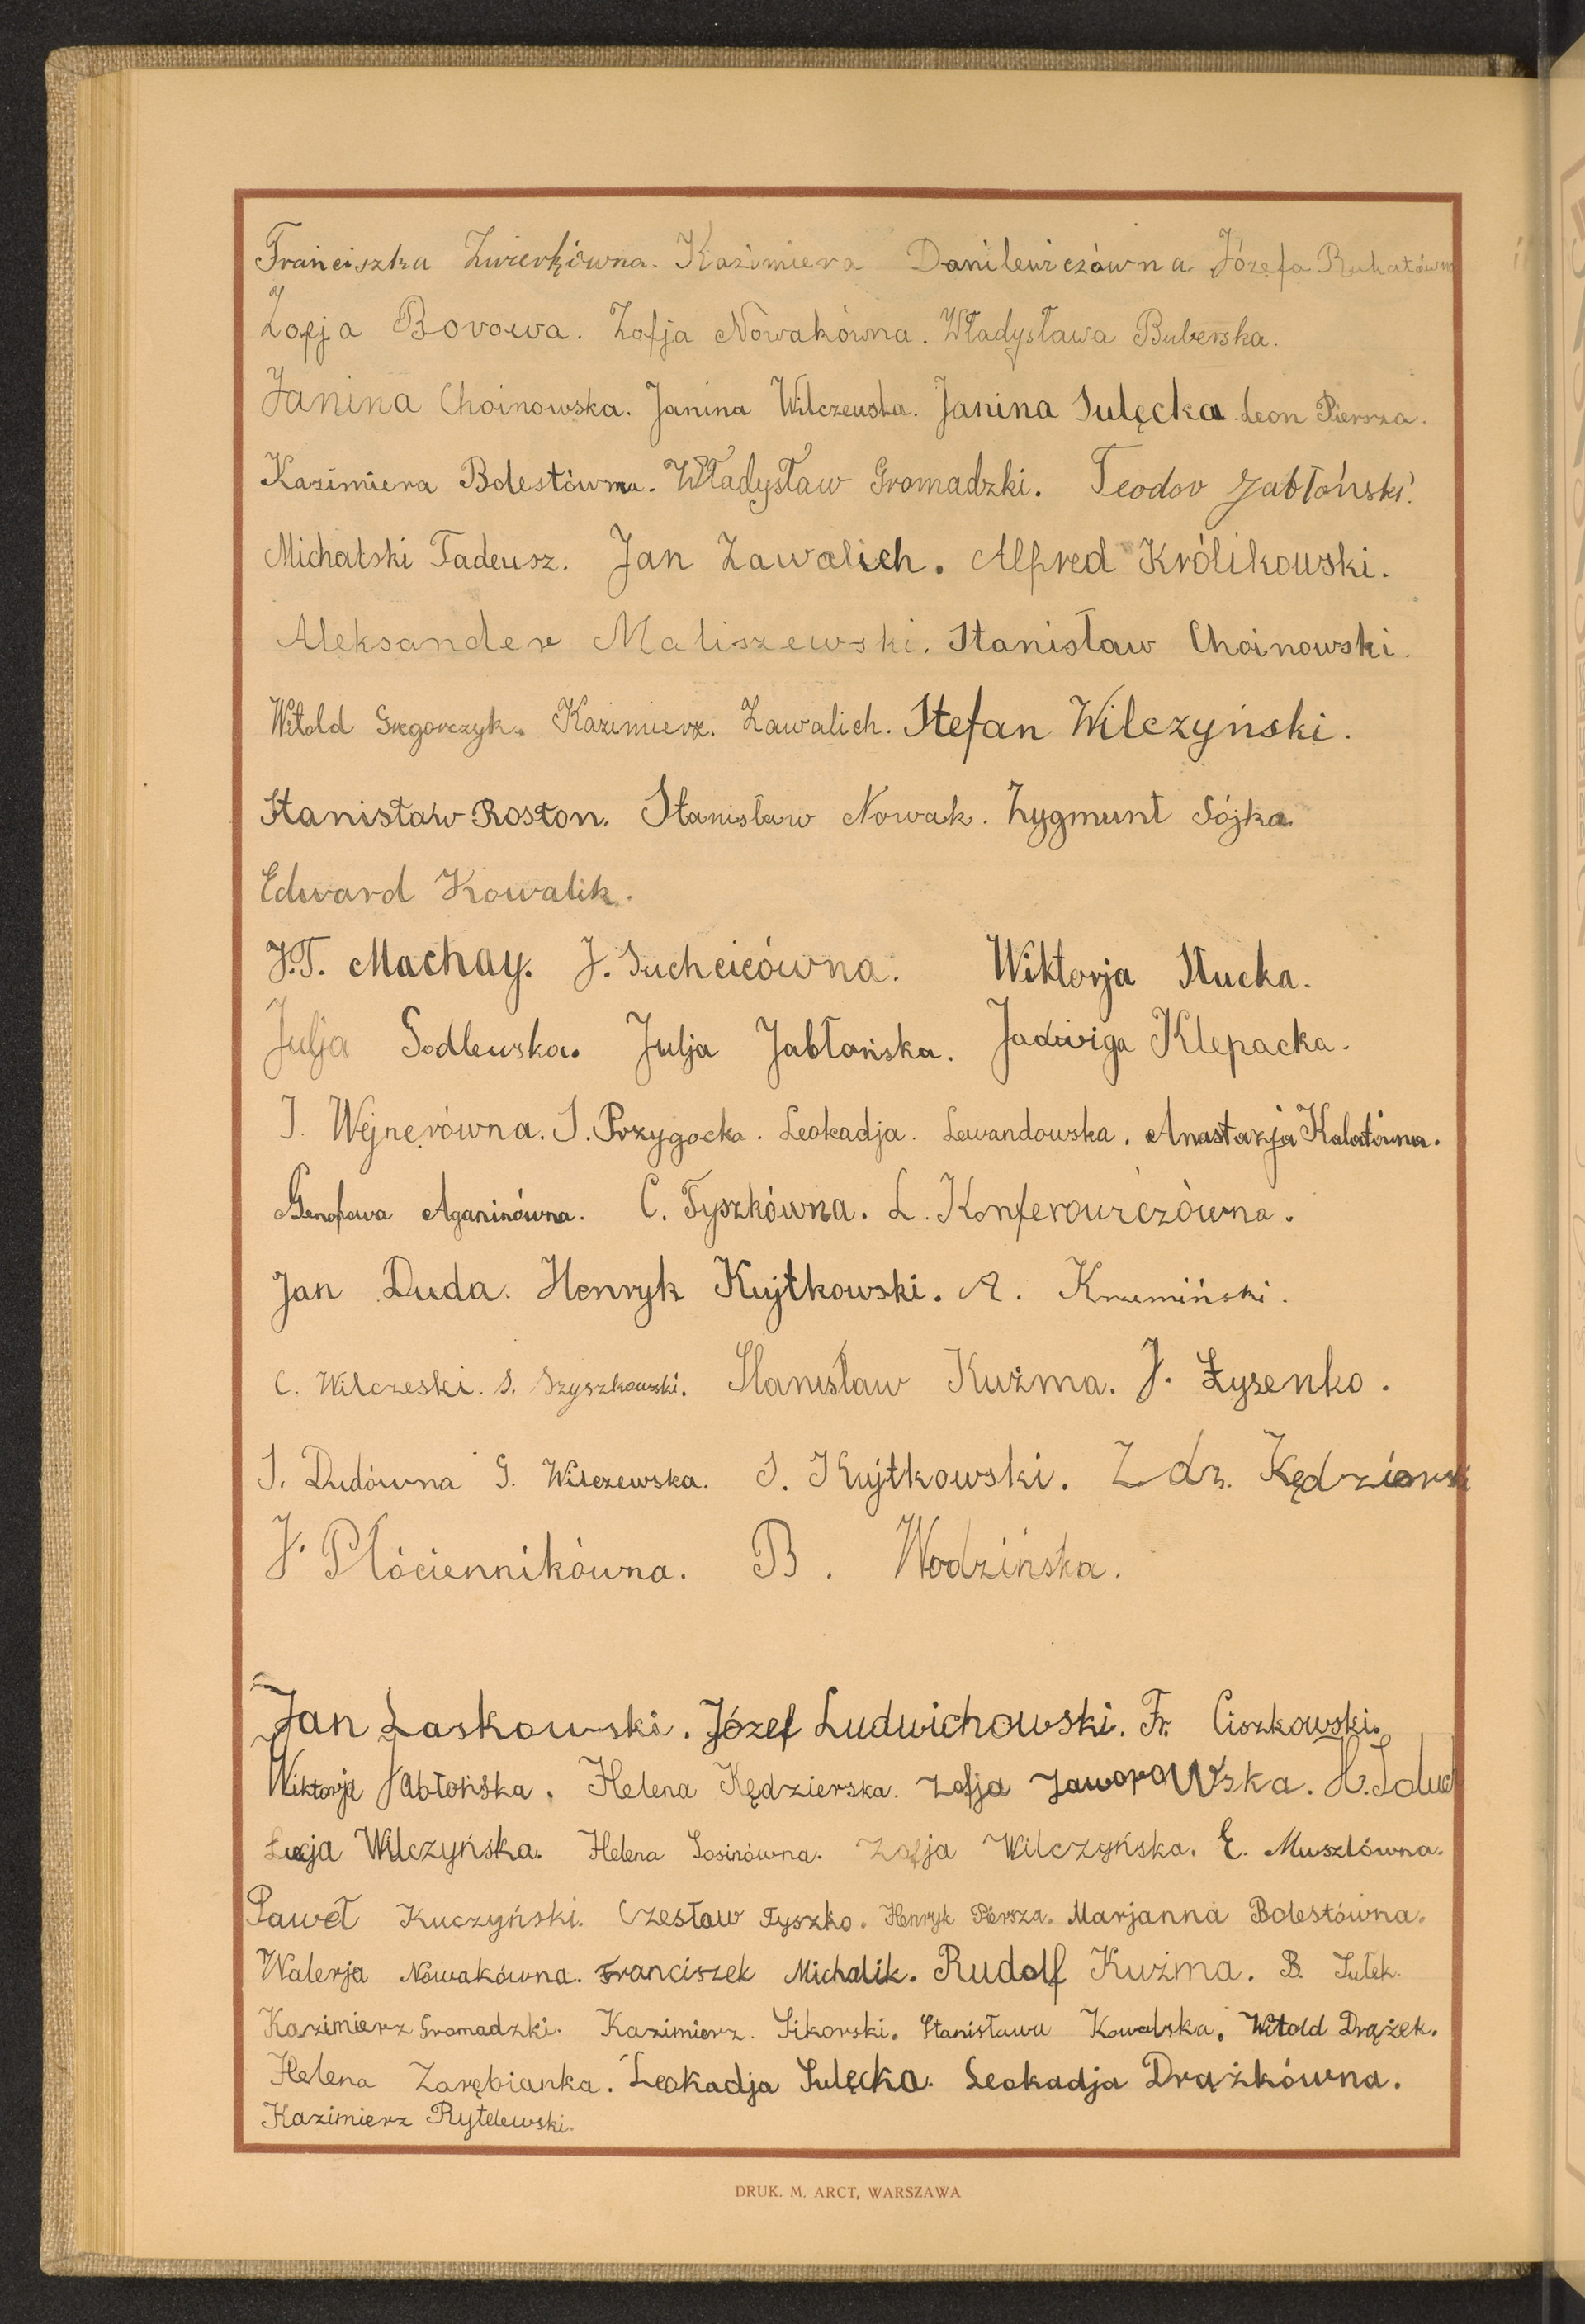 Franciszka Zwierkówna. Kazimiera Danilewiczówna Józefa Rukatówna
Zofja Borowa. Zofja Nowakówna. Władysława Buberska.
Janina Choinowska. Janina Wilczewska. Janina Sulęcka. Leon Piersza.
Kazimiera Bolestówna. Władysław Gromadzki. Teodor Jabłoński.
Michalski Tadeusz. Jan Zawalich. Alfred Królikowski.
Aleksander Maliszewski. Stanisław Choinowski.
Witold Gregorczyk. Kazimierz. Zawalich. Stefan Wilczyński.
Stanisław Roston. Stanisław Nowak. Zygmunt Sójka.
Edward Kowalik.
J.T. Machay. J. Suchcicówna. Wiktorja Słucka.
Julja Sodlewska. Julja Jabłońska. Jadwiga Klepacka.
J. Wejnerówna. S. Przygocka. Leokadja. Lewandowska. Anastazja Kalatówna.
Genofewa Aganinówna. C. Tyszkówna. L. Konferowiczówna.
Jan Duda. Henryk Kujtkowski. A. Krzemiński.
C. Wilczeski. S. Szyszkowski. Stanisław Kuźma. J. Łysenko.
S. Dudówna G. Wilczewska. S. Kujtkowski. Zdz. Kędziorsk
J. Płóciennikówna. B. Wodzińska.
Jan Laskowski. Józef Ludwichowski. Fr. Ciszkowski.
Wiktorja Jabłońska. Helena Kędzierska. Zofja Jaworowska. H.
Łucja Wilczyńska. Helena Sosinówna. Zofja Wilczyńska. E. Muszlówna.
Paweł Kuczyński. Czesław Tyszko. Henryk Piersza. Marjanna Bolestówna.
Walerja Nowakówna. Franciszek Michalik. Rudolf Kuźma. B. Sulek.
Kazimierz Gromadzki. Kazimierz. Sikorski. Stanisława Kowalska. Witold Drążek.
Helena Zarębianka. Leokadja Sulęcka. Leokadja Drążkówna.
Kazimierz Rytelewski.
DRUK. M. ARCT, WARSZAWA